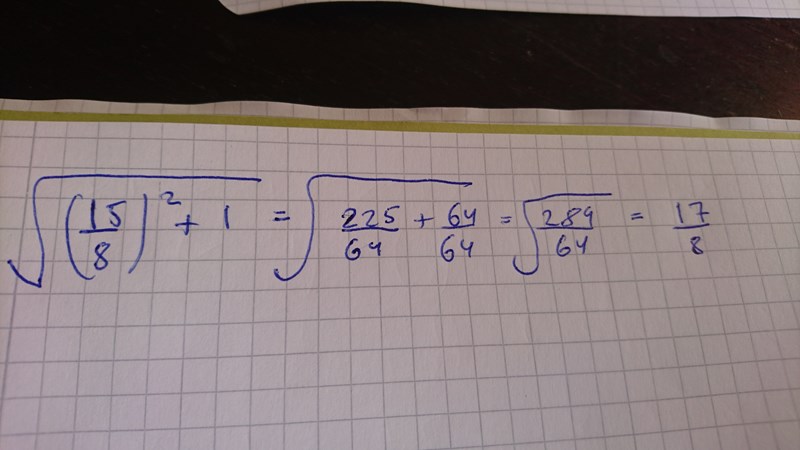 √((15/8)² + 1) = √(225/64 + 64/64) = √(289/64) = 17/8